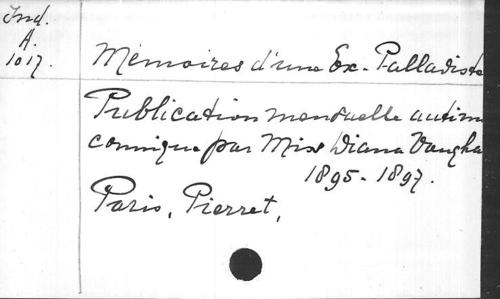 Ind.
A.
1017.
Mémoires d'une Ex-Palladiste
Publication mensuelle
comique par Miss Diana Vaugha
1895-1897.
Paris, Pierret,